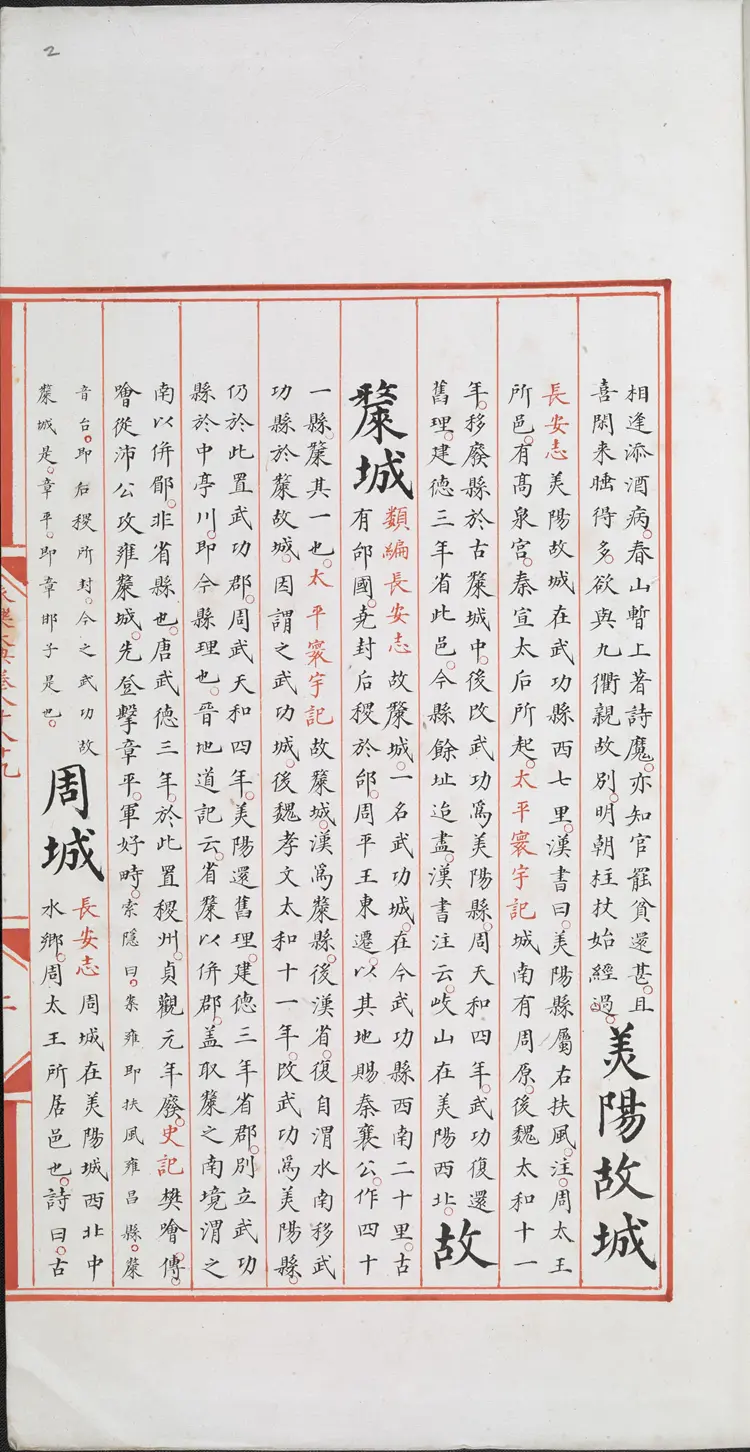 2
相逢添酒病。春山暫上著詩魔。亦知官罷貧還甚。且
喜閑来睡得多。欲與九衢親故別。明朝拄杖始經過。
羙陽故城
長安志羙陽故城在武功縣西七里。漢書曰。羙陽縣屬右扶風。注。周太王
所邑。有高泉宮。秦宣太后所起。太平寰宇記城南有周原。後魏太和十一
年。移廢縣於古斄城中。後改武功爲羙陽縣。周天和四年。武功復還
舊理。建德三年省此邑。今縣餘址迨盡。漢書注云。岐山在羙陽西北。
故斄城
類編長安志故斄城。一名武功城。在今武功縣西南二十里。古
有邰國。尭封后稷於邰。周平王東遷。以其地賜秦襄公。作四十
一縣。斄其一也。太平寰宇記故斄城。漢爲斄縣。後漢省。復自渭水南移武
功縣於斄故城。因謂之武功城。後魏孝文太和十一年。改武功爲美陽縣。
仍於此置武功郡。周武天和四年。羙陽還舊理。建德三年省郡。別立武功
縣於中亭川。即今縣理也。晉地道記云。省斄以併郡。盖取斄之南境渭之
南以併郿。非省縣也。唐武德三年。於此置稷州。貞觀元年廢。史記樊噲傳。
噲從沛公攻雍斄城。先登擊章平。軍好畤。索隱曰。案雍即扶風雍昌縣。斄
音台。即后稷所封。今之武功故
斄城是。章平。即章邯子是也。
周城
長安志周城在美陽城西北中
水鄉。周太王所居邑也。詩曰。古
二